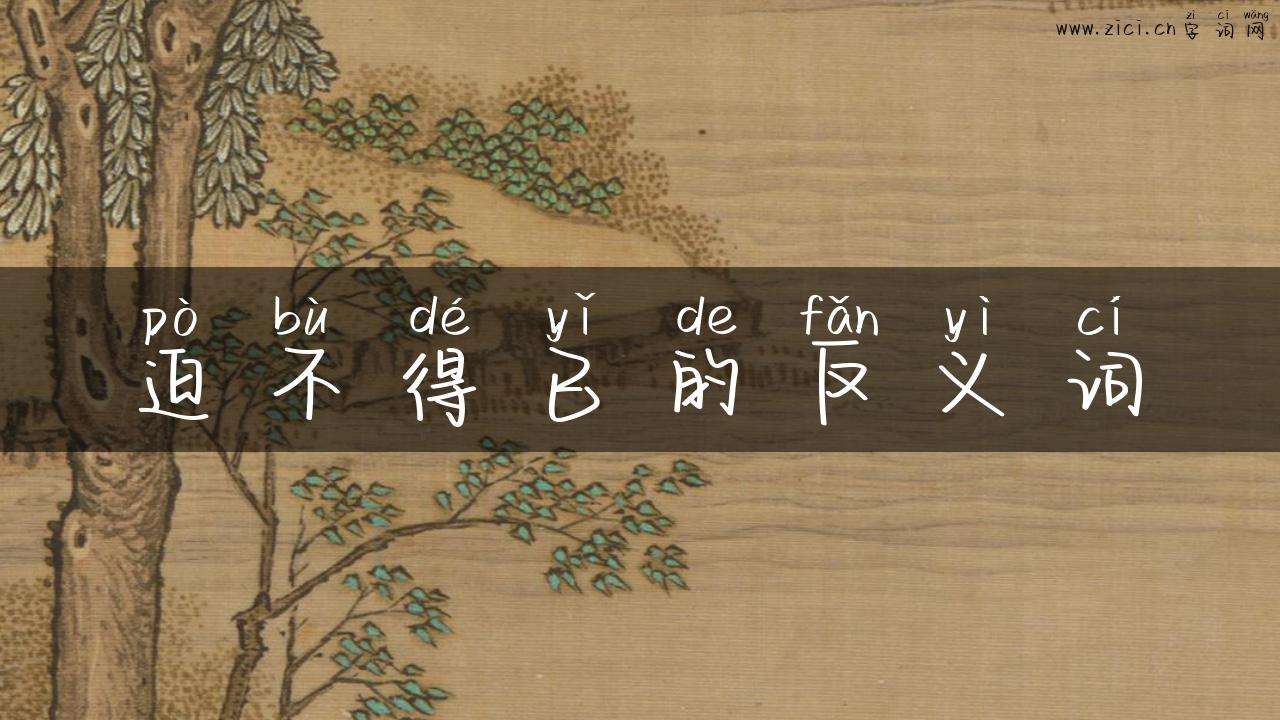 zì cí wǎng
www.zici.cn 字词网
pò bù dé yǐ de fǎn yì cí
迫不得已的反义词